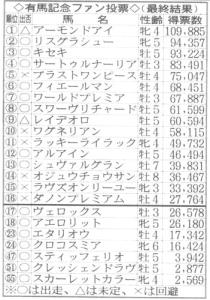 ◇有馬記念ファン投票◇(最終結果)
順位 出否 馬名 性齢 得票数
① △ アーモンドアイ 牝4 109,885
② ○ リスグラシュー 牝5 94,357
③ ○ キセキ 牡5 93,224
④ ○ サートゥルナーリア 牡3 83,491
⑤ × ブラストワンピース 牡4 75,047
⑥ ○ フィエールマン 牡4 68,451
⑦ ○ ワールドプレミア 牡3 67,887
⑧ ○ スワーヴリチャード 牡5 61,599
⑨ △ レイデオロ 牡5 60,594
⑩ × ワグネリアン 牡4 58,115
⑪ × ラッキーライラック 牝4 49,732
⑫ ○ アルアイン 牡5 46,494
⑬ ○ シュヴァルグラン 牡7 39,831
⑭ ○ オジュウチョウサン 牡8 36,467
⑮ × ラヴズオンリーユー 牝3 33,392
⑯ × ダノンプレミアム 牡4 27,764
⑰ ○ ヴェロックス 牡3 26,578
⑱ ○ アエロリット 牝5 26,180
㉓ ○ エタリオウ 牡4 17,342
㉔ ○ クロコスミア 牝6 16,424
㊼ ○ スティッフェリオ 牡5 3,942
○ クレッシェンドラヴ 牡5 2,877
○ スカーレットカラー 牝4 2,569
※○は出走、△は未定、×は回避